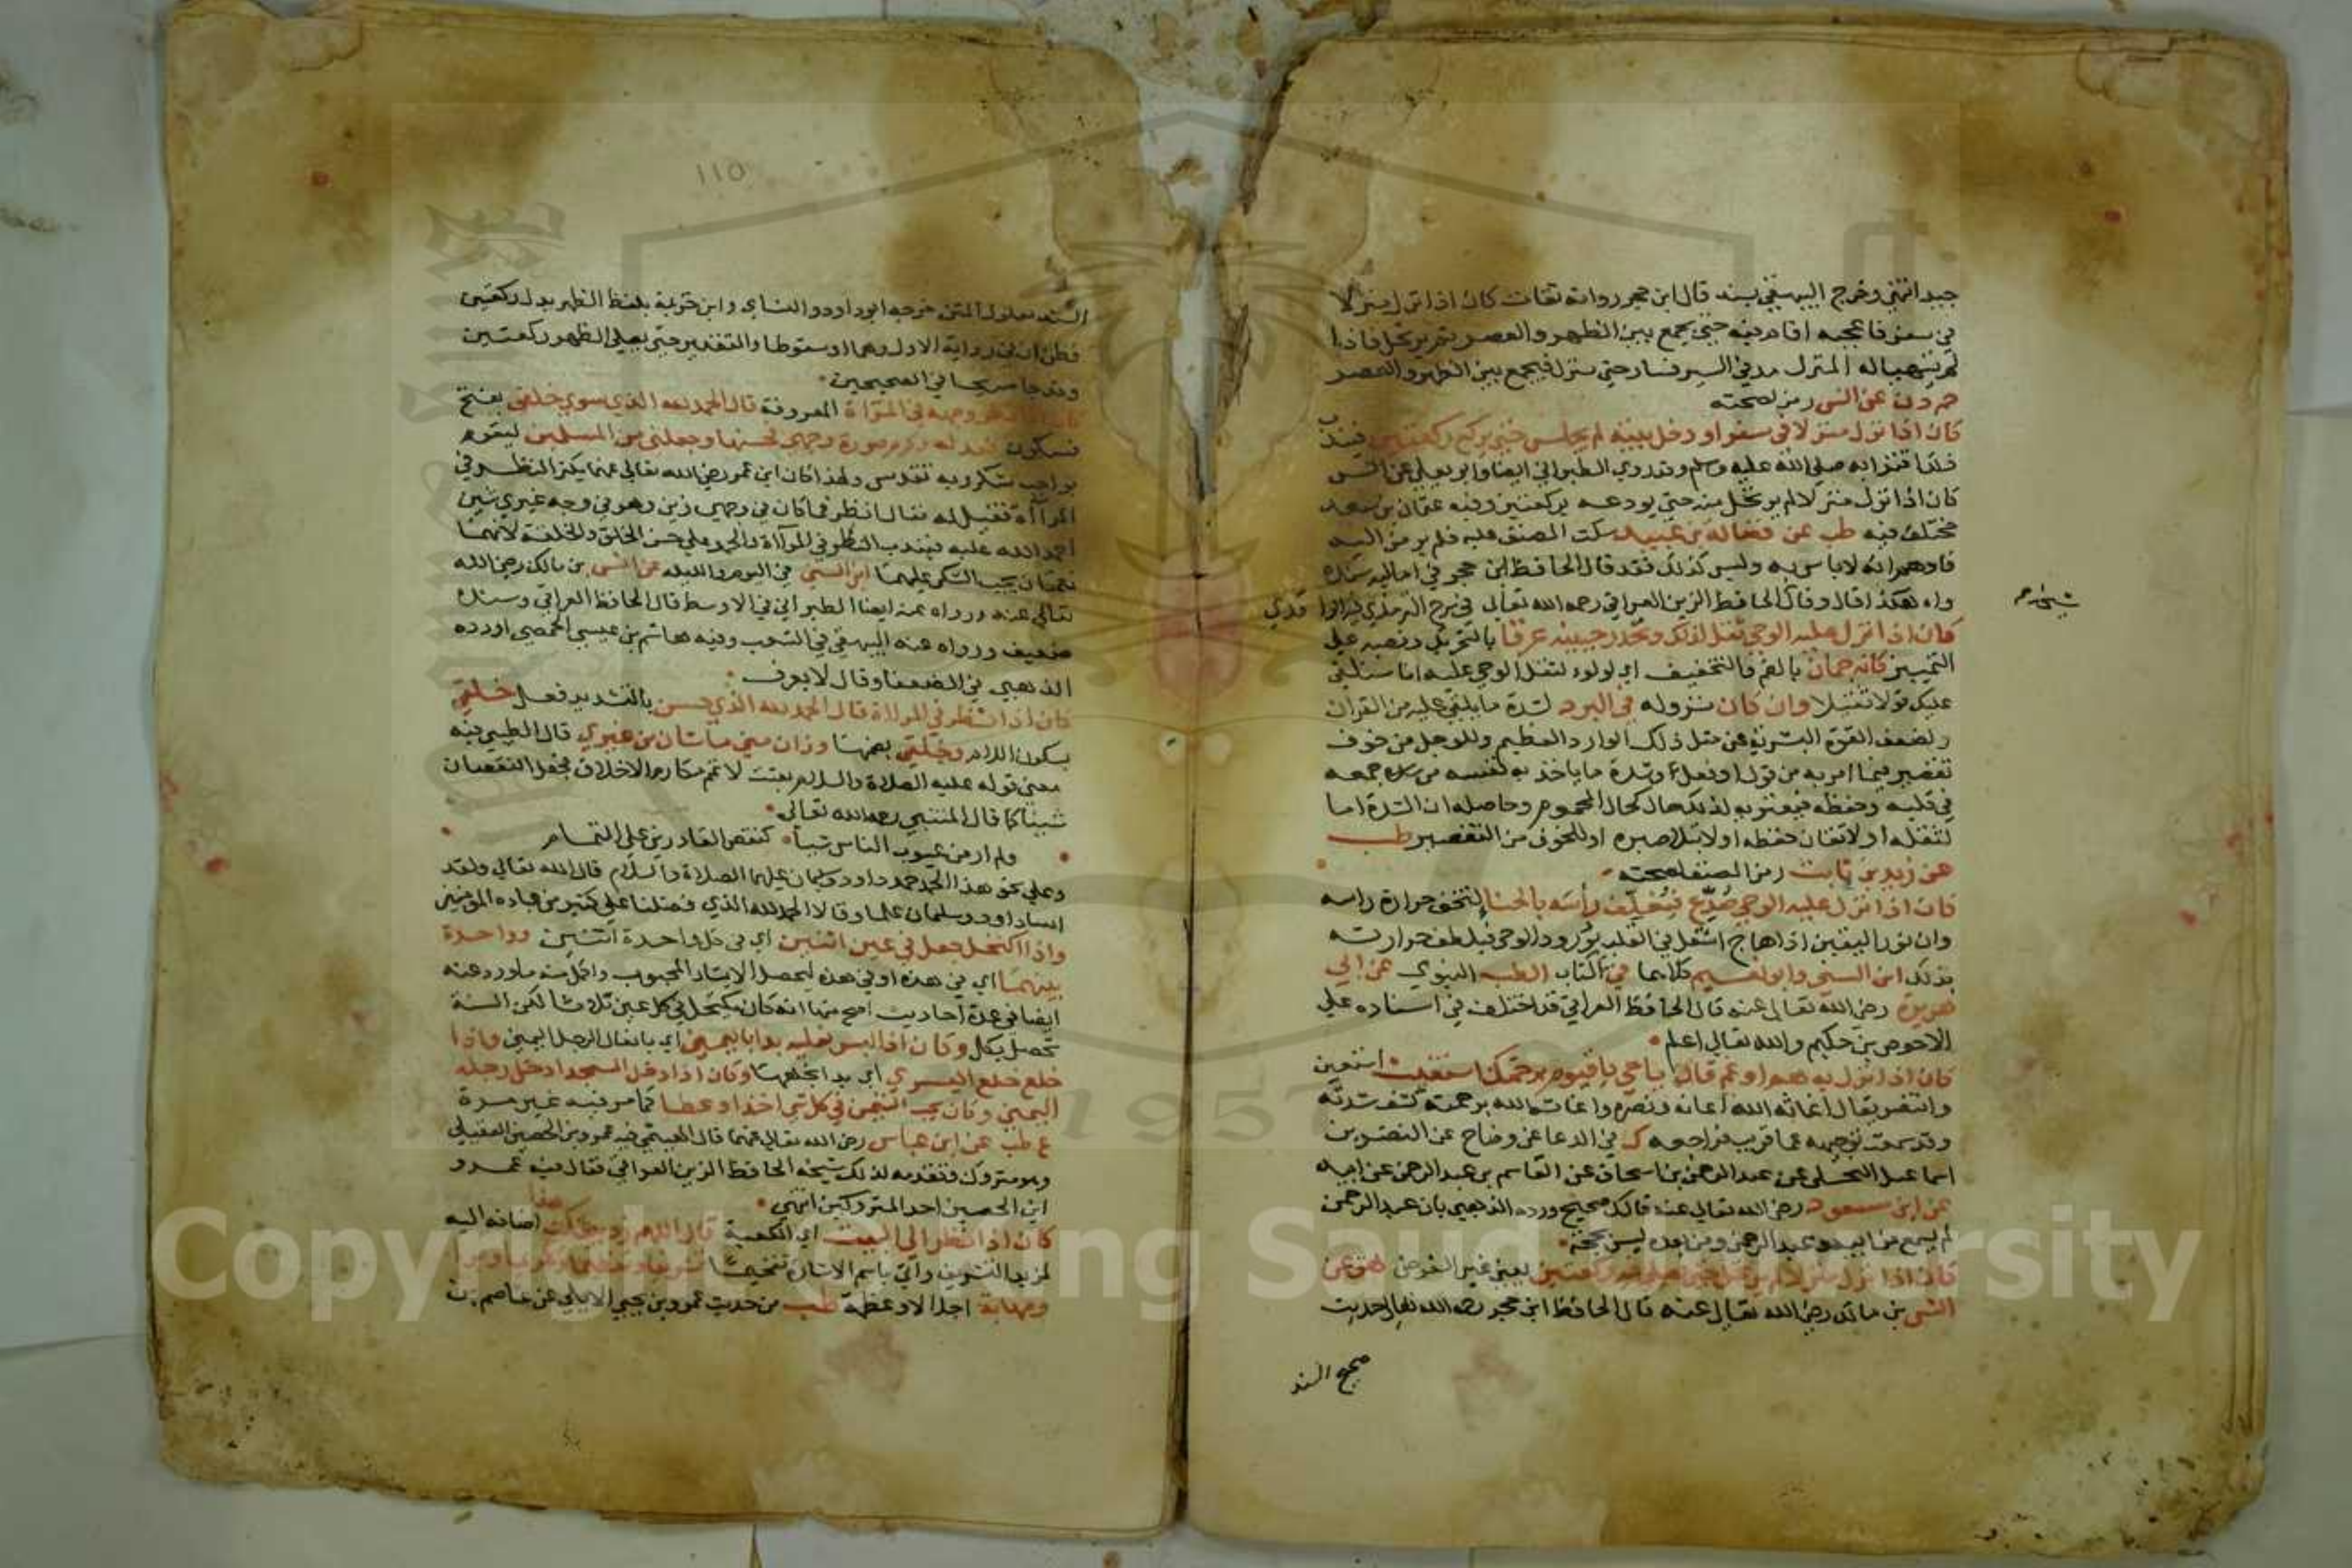 جيد انتهي وخرج البيهقي بسند قال ابن حجر رواته ثقات كان اذا نزل منزلا
في سفر فاعجبه اقام فيه حتي يجمع بين الظهر والعصر ثم يرتحل فاذا
لم يتهيا له المنزل مد في السير فسار حتي ينزل فيجمع بين الظهر والعصر
حم د ن عن انس رمز لصحته
كان اذا نزل منزلا في سفر او دخل بيته لم يجلس حتي يركع ركعتين فيندب
ذلك اقتدا به صلي الله عليه وسلم وقد روي الطبراني ايضا وابو يعلي عن انس
كان اذا نزل منزلا لم يرتحل منه حتي يودعه بركعتين وفيه عثمان بن سعد
مختلف فيه طب عن فضالة بن عبيد سكت المصنف عليه فلم يرمز اليه
فاوهم انه لا باس به وليس كذلك فقد قال الحافظ ابن حجر في اماليه سنده
واه هكذا قال وقال الحافظ الزين العراقي رحمه الله تعالي في شرح الترمذي
كان اذا نزل عليه الوحي ثقل لذلك وتحدر جبينه عرقا بالتحريك ونصبه علي
التمييز كانه جمان بالضم والتخفيف اي لولو لثقل الوحي عليه انا سنلقي
عليك قولا ثقيلا وان كان نزوله في البرد لشدة ما يلقي عليه من القران
ولضعف القوة البشرية عن مثل ذلك الوارد العظيم وللوجل من خوف
تقصير فيما امر به من قول او فعل وشدة ما ياخذ به نفسه من جمعه
في قلبه وحفظه فيعتريه لذلك حال كحال المحموم وحاصله ان الشدة اما
لثقله او لاتقان حفظه او لابتلا صبره او للخوف من التقصير طب
عن زيد بن ثابت رمز المصنف لصحته
كان اذا نزل عليه الوحي صدع فيغلف راسه بالحنا لتخف حرارة راسه
وان نور اليقين اذا هاج اشتعل في القلب بورود الوحي فيلطف حرارته
بذلك ابن السني وابو نعيم كلاهما في كتاب الطب النبوي عن ابي
هريرة رضي الله تعالي عنه قال الحافظ العراقي قد اختلف في اسناده علي
الاحوص بن حكيم والله تعالي اعلم
كان اذا نزل به هم او غم قال يا حي يا قيوم برحمتك استغيث استعين
وانتصر يقال اغاثه الله اعانه ونصره واغاثه الله برحمته كشف شدته
وقد سمعت توجيهه عما قريب فراجعه ك في الدعا عن وضاح عن النضر بن
اسماعيل البجلي عن عبد الرحمن بن اسحاق عن القاسم بن عبد الرحمن عن ابيه
عن ابن مسعود رضي الله تعالي عنه قال ك صحيح ورده الذهبي بان عبد الرحمن
لم يسمع من ابيه وعبد الرحمن ومن بعده ليس بحجة
كان اذا نزل منزلا لم يرتحل حتي يصلي فيه ركعتين يعني غير الفرض هق عن
انس بن مالك رضي الله تعالي عنه قال الحافظ ابن حجر رحمه الله تعالي حديث
صحيح السند
١١٥
السند معلول المتن خرجه ابو داود والنساي وابن خزيمة بلفظ الظهر بدل ركعتين
فظن ان في رواية الاول وهما او سقوطا والتقدير حتي يصلي الظهر ركعتين
وقد جا صريحا في الصحيحين
كان اذا نظر وجهه في المراة المعروفة قال الحمد لله الذي سوي خلقي بفتح
فسكون فعدله وكرم صورة وجهي فحسنها وجعلني من المسلمين ليقوم
بواجب شكر ربه تقدس ولهذا كان ابن عمر رضي الله تعالي عنهما يكثر النظر في
المرآة فقيل له فقال انظر فما كان في وجهي زين وهو في وجه غيري شين
احمد الله عليه فيندب النظر في المرآة والحمد علي حسن الخلق والخلقة لانهما
نعمتان يجب الشكر عليهما ابن السني في اليوم والليلة عن انس بن مالك رضي الله
تعالي عنه ورواه عنه ايضا الطبراني في الاوسط قال الحافظ العراقي وسنده
ضعيف ورواه عنه البيهقي في الشعب وفيه هاشم بن عيسي الحمصي اورده
الذهبي في الضعفا وقال لا يعرف
كان اذا نظر في المراة قال الحمد لله الذي حسن بالتشديد فعل خلقي
بسكون اللام وخلقي بضمها وزان مني ما شان من غيري قال الطيبي فيه
معني قوله عليه الصلاة والسلام بعثت لاتمم مكارم الاخلاق فجعل النقصان
شينا كما قال المتنبي رحمه الله تعالي
ولم ار من عيوب الناس شيا كنقص القادرين علي التمام
وعلي نحو هذا الحمد حمد داود وسليمان عليهما الصلاة والسلام قال الله تعالي ولقد
اتينا داود وسليمان علما وقالا الحمد لله الذي فضلنا علي كثير من عباده المؤمنين
واذا اكتحل جعل في عين اثنين اي في كل واحدة اثنتين وواحدة
بينهما اي في هذه او في هذه ليحصل الايتار المحبوب واكمل منه ما ورد عنه
ايضا في عدة احاديث اصح منها انه كان يكتحل في كل عين ثلاثا لكن السنة
تحصل بكل وكان اذا لبس نعليه بدا باليمني اي بانعال الرجل اليمني واذا
خلع خلع اليسري اي بدا بخلعها وكان اذا دخل المسجد ادخل رجله
اليمني وكان يحب التيمن في كل شي اخذا وعطا كما مر فيه غير مرة
ع طب عن ابن عباس رضي الله تعالي عنهما قال الهيتمي فيه عمرو بن الحصين العقيلي
وهو متروك وتقدمه لذلك شيخه الحافظ الزين العراقي فقال فيه عمرو
ابن الحصين احد المتروكين انتهي
كان اذا نظر الي البيت اي الكعبة قال اللهم زد بيتك هذا اضافه اليه
لمزيد التشريف واتي باسم الاشارة تفخيما تشريفا وتعظيما وتكريما وبرا
ومهابة اجلالا وعظمة طب من حديث عمرو بن يحيي الايلي عن عاصم بن